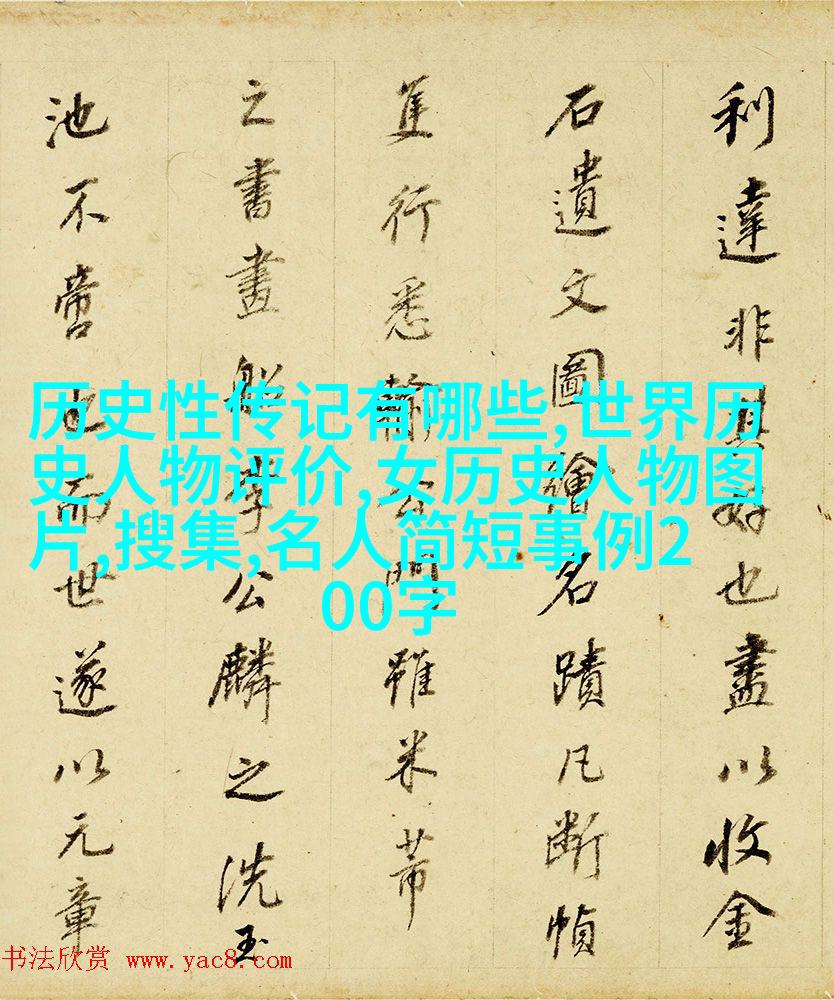 利達非其好也盡以收金
石遺文圖繪名蹟凡斷幀
隻行悉輸公門雖米芾
之書畫船李公麟之洗玉
池不啻也而世遂以元章
历史性传记有哪些,世界历
史人物评价,女历史人物图
片,搜集,名人简短事例2
00字
书法欣赏 www.yac8.com